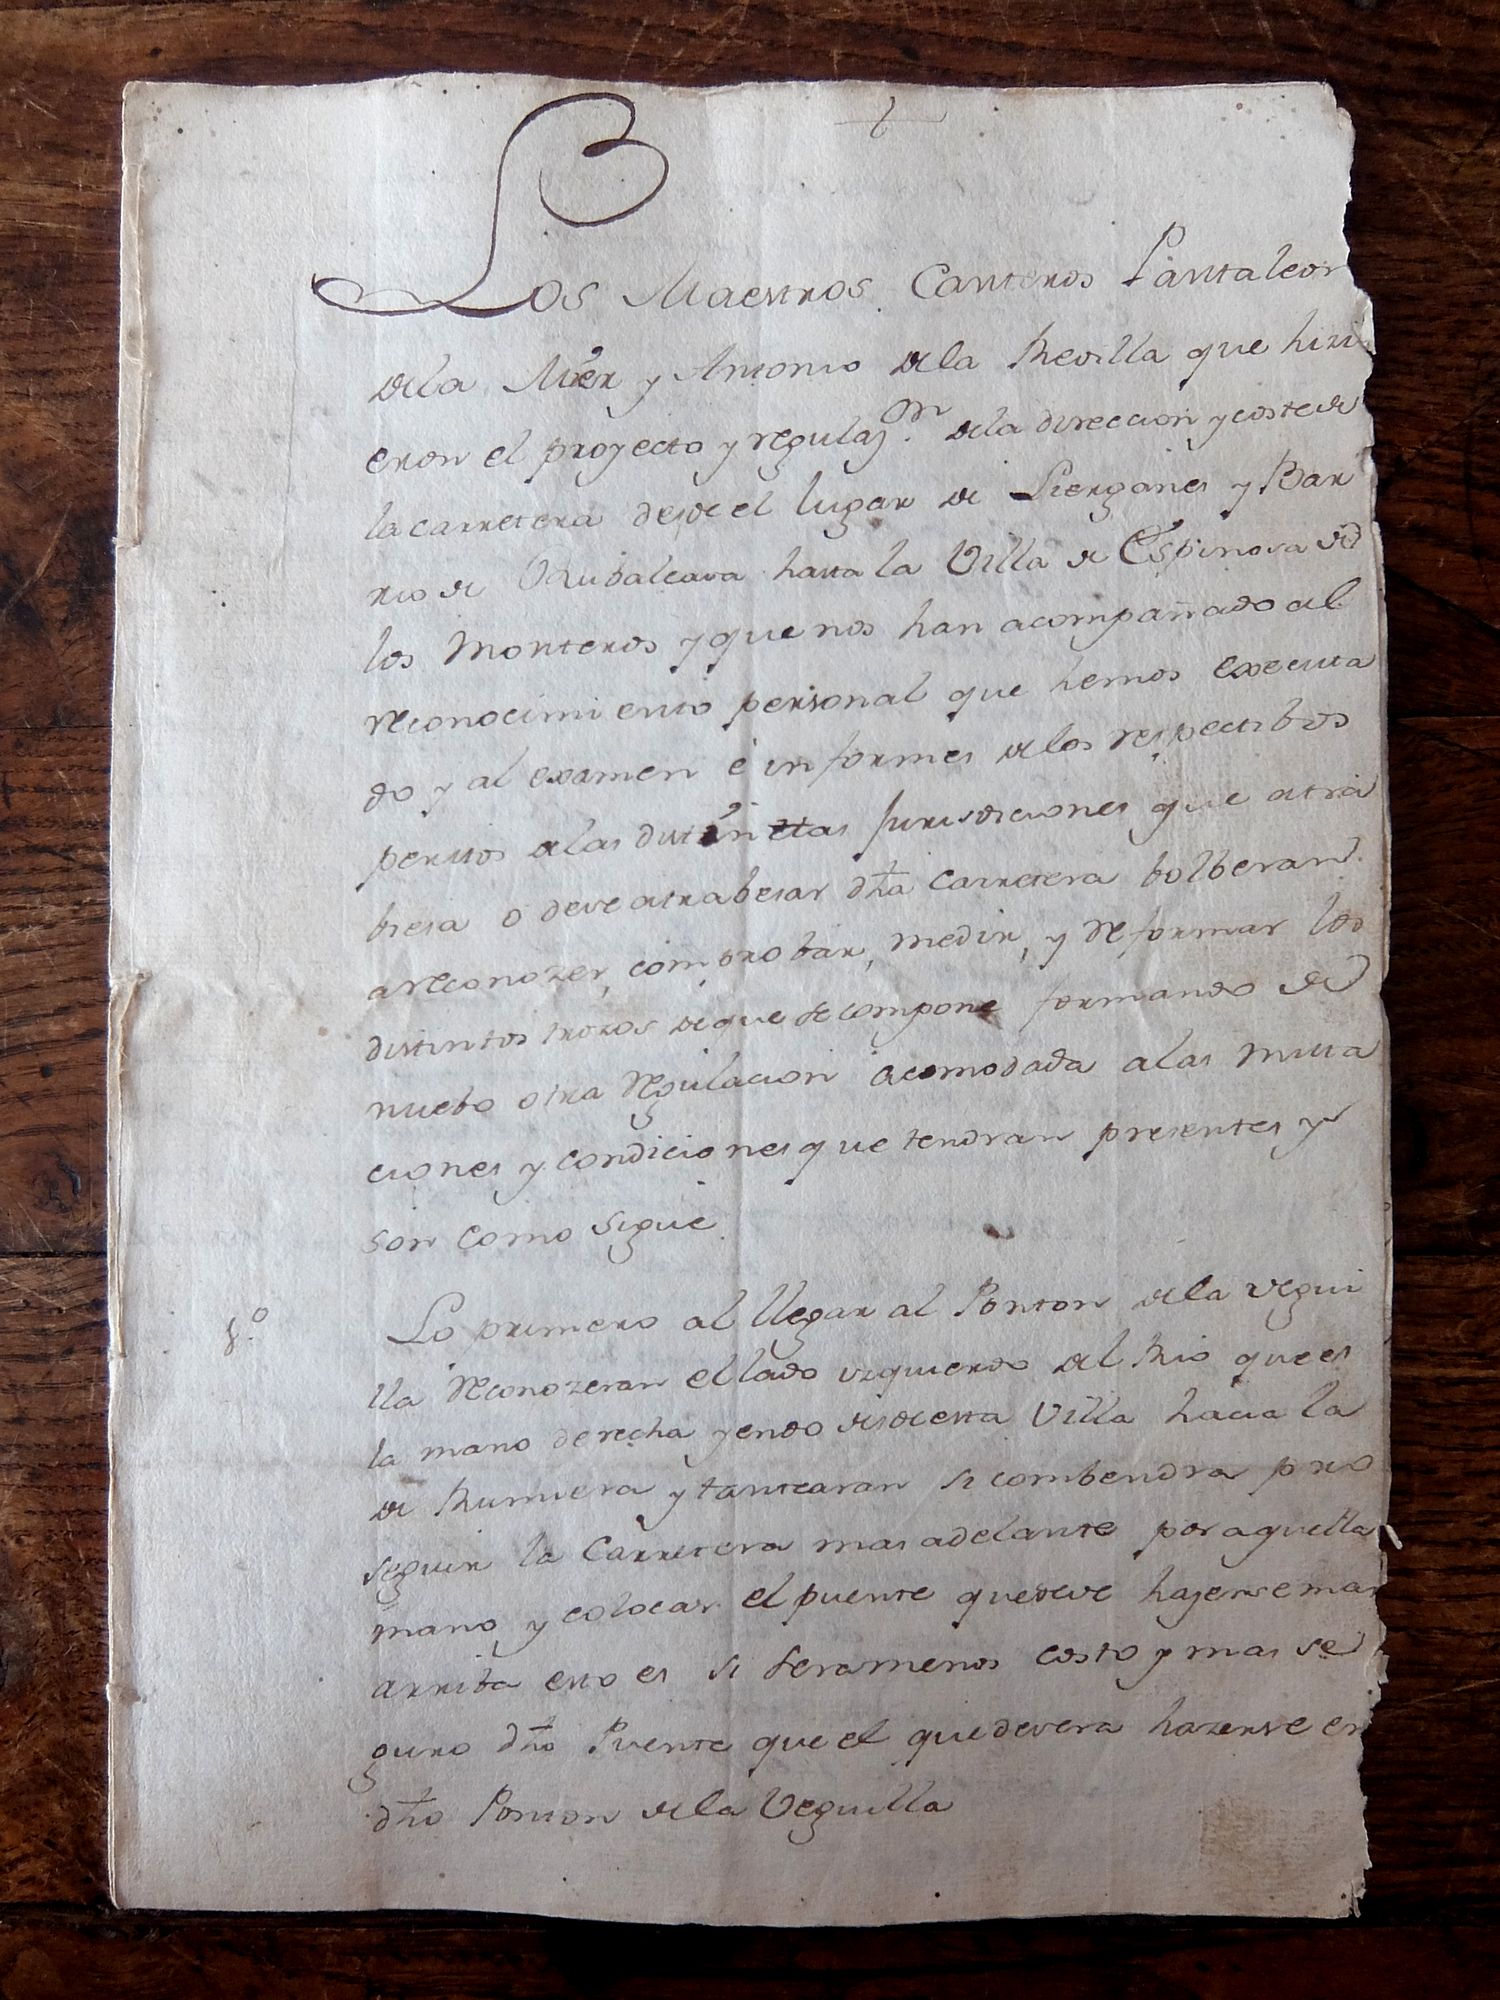 Los Maestros Canteros Pantaleon
dela Mier y Antonio dela Revilla que hizi
eron el proyecto y regulaz.on dela direccion y coste de
la carretera desde el lugar de Lierganes y Bar
rio de Rubalcava hasta la Villa de Espinosa de
los Monteros y que nos han acompañado al
reconocimiento personal que hemos executa
do y al examen é informes delos respectibos
peritos alas distintas Jurisdiciones que atra
biesa o deve atrabesar dha Carretera bolberan
a reconozer, comprobar, medir, y reformar los
distintos trozos deque se compone formando de
nuebo otra regulacion acomodada alas muta
ciones y condiciones que tendran presentes y
son como sigue
1.o Lo primero al llegar al Ponton dela vegui
lla reconozeran el lado yzquierdo del Rio que es
la mano derecha yendo desde esta Villa hacia la
de Rumiera y tantearan si combendra pro
seguir la Carretera mas adelante por aquella
mano y colocar el puente quedeve hazerse mas
arriba esto es si sera menos costo y mas se
guro dho Puente que el que devera hazerse en
dho Ponton dela Veguilla